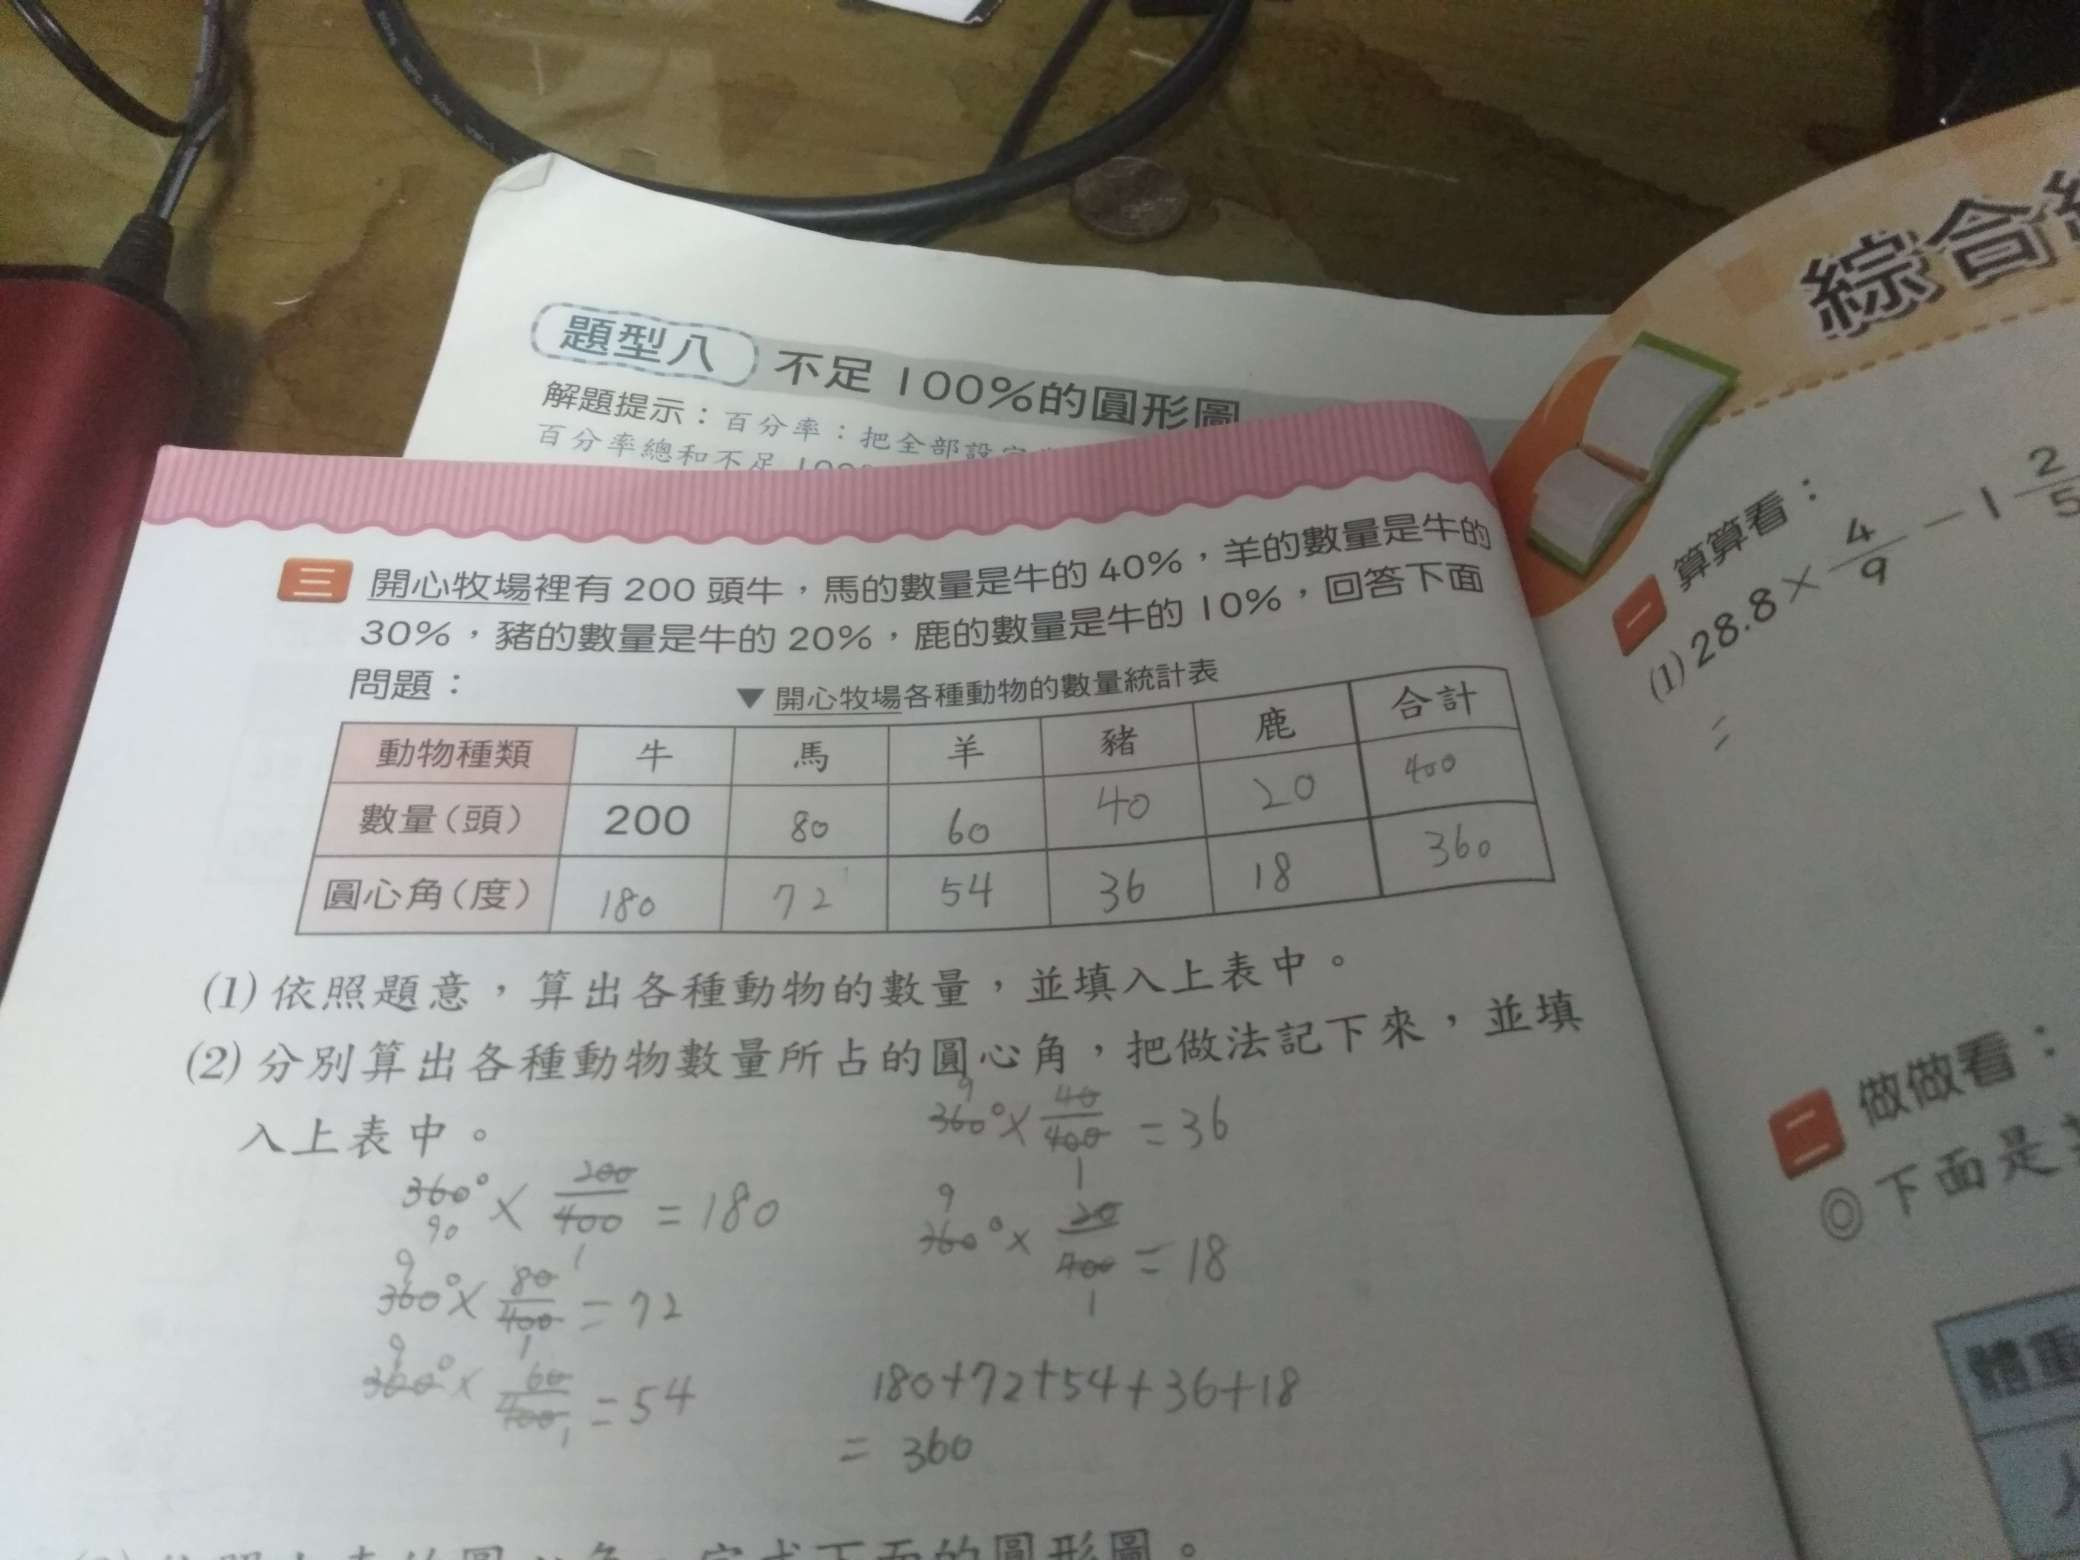 題型八 不足100%的圓形圖
解題提示：百分率：把全部設定
百分率總和不足 100%
三 開心牧場裡有 200 頭牛，馬的數量是牛的 40%，羊的數量是牛的
30%，豬的數量是牛的 20%，鹿的數量是牛的 10%，回答下面
問題：
▼開心牧場各種動物的數量統計表
動物種類 牛 馬 羊 豬 鹿 合計
數量(頭) 200 80 60 40 20 400
圓心角(度) 180 72 54 36 18 360
(1) 依照題意，算出各種動物的數量，並填入上表中。
(2) 分別算出各種動物數量所占的圓心角，把做法記下來，並填
入上表中。
360° × 200/400 = 180
90
1
9
360° × 80/400 = 72
1
9
360° × 60/400 = 54
1
9
360° × 40/400 = 36
1
9
360° × 20/400 = 18
1
180+72+54+36+18
= 360
下面的圓形圖。
綜合
一 算算看：
(1) 28.8 × 4/9 − 1 2/5
=
二 做做看：
◎下面是
體重